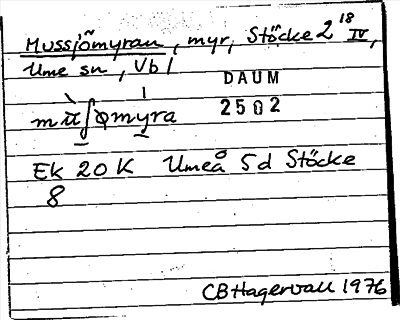 Mussjömyran, myr, Stöcke 2 18 IV,
Ume sn, Vbl
DAUM
2502
Ek 20 K Umeå 5d Stöcke
8
CBHagervall 1976